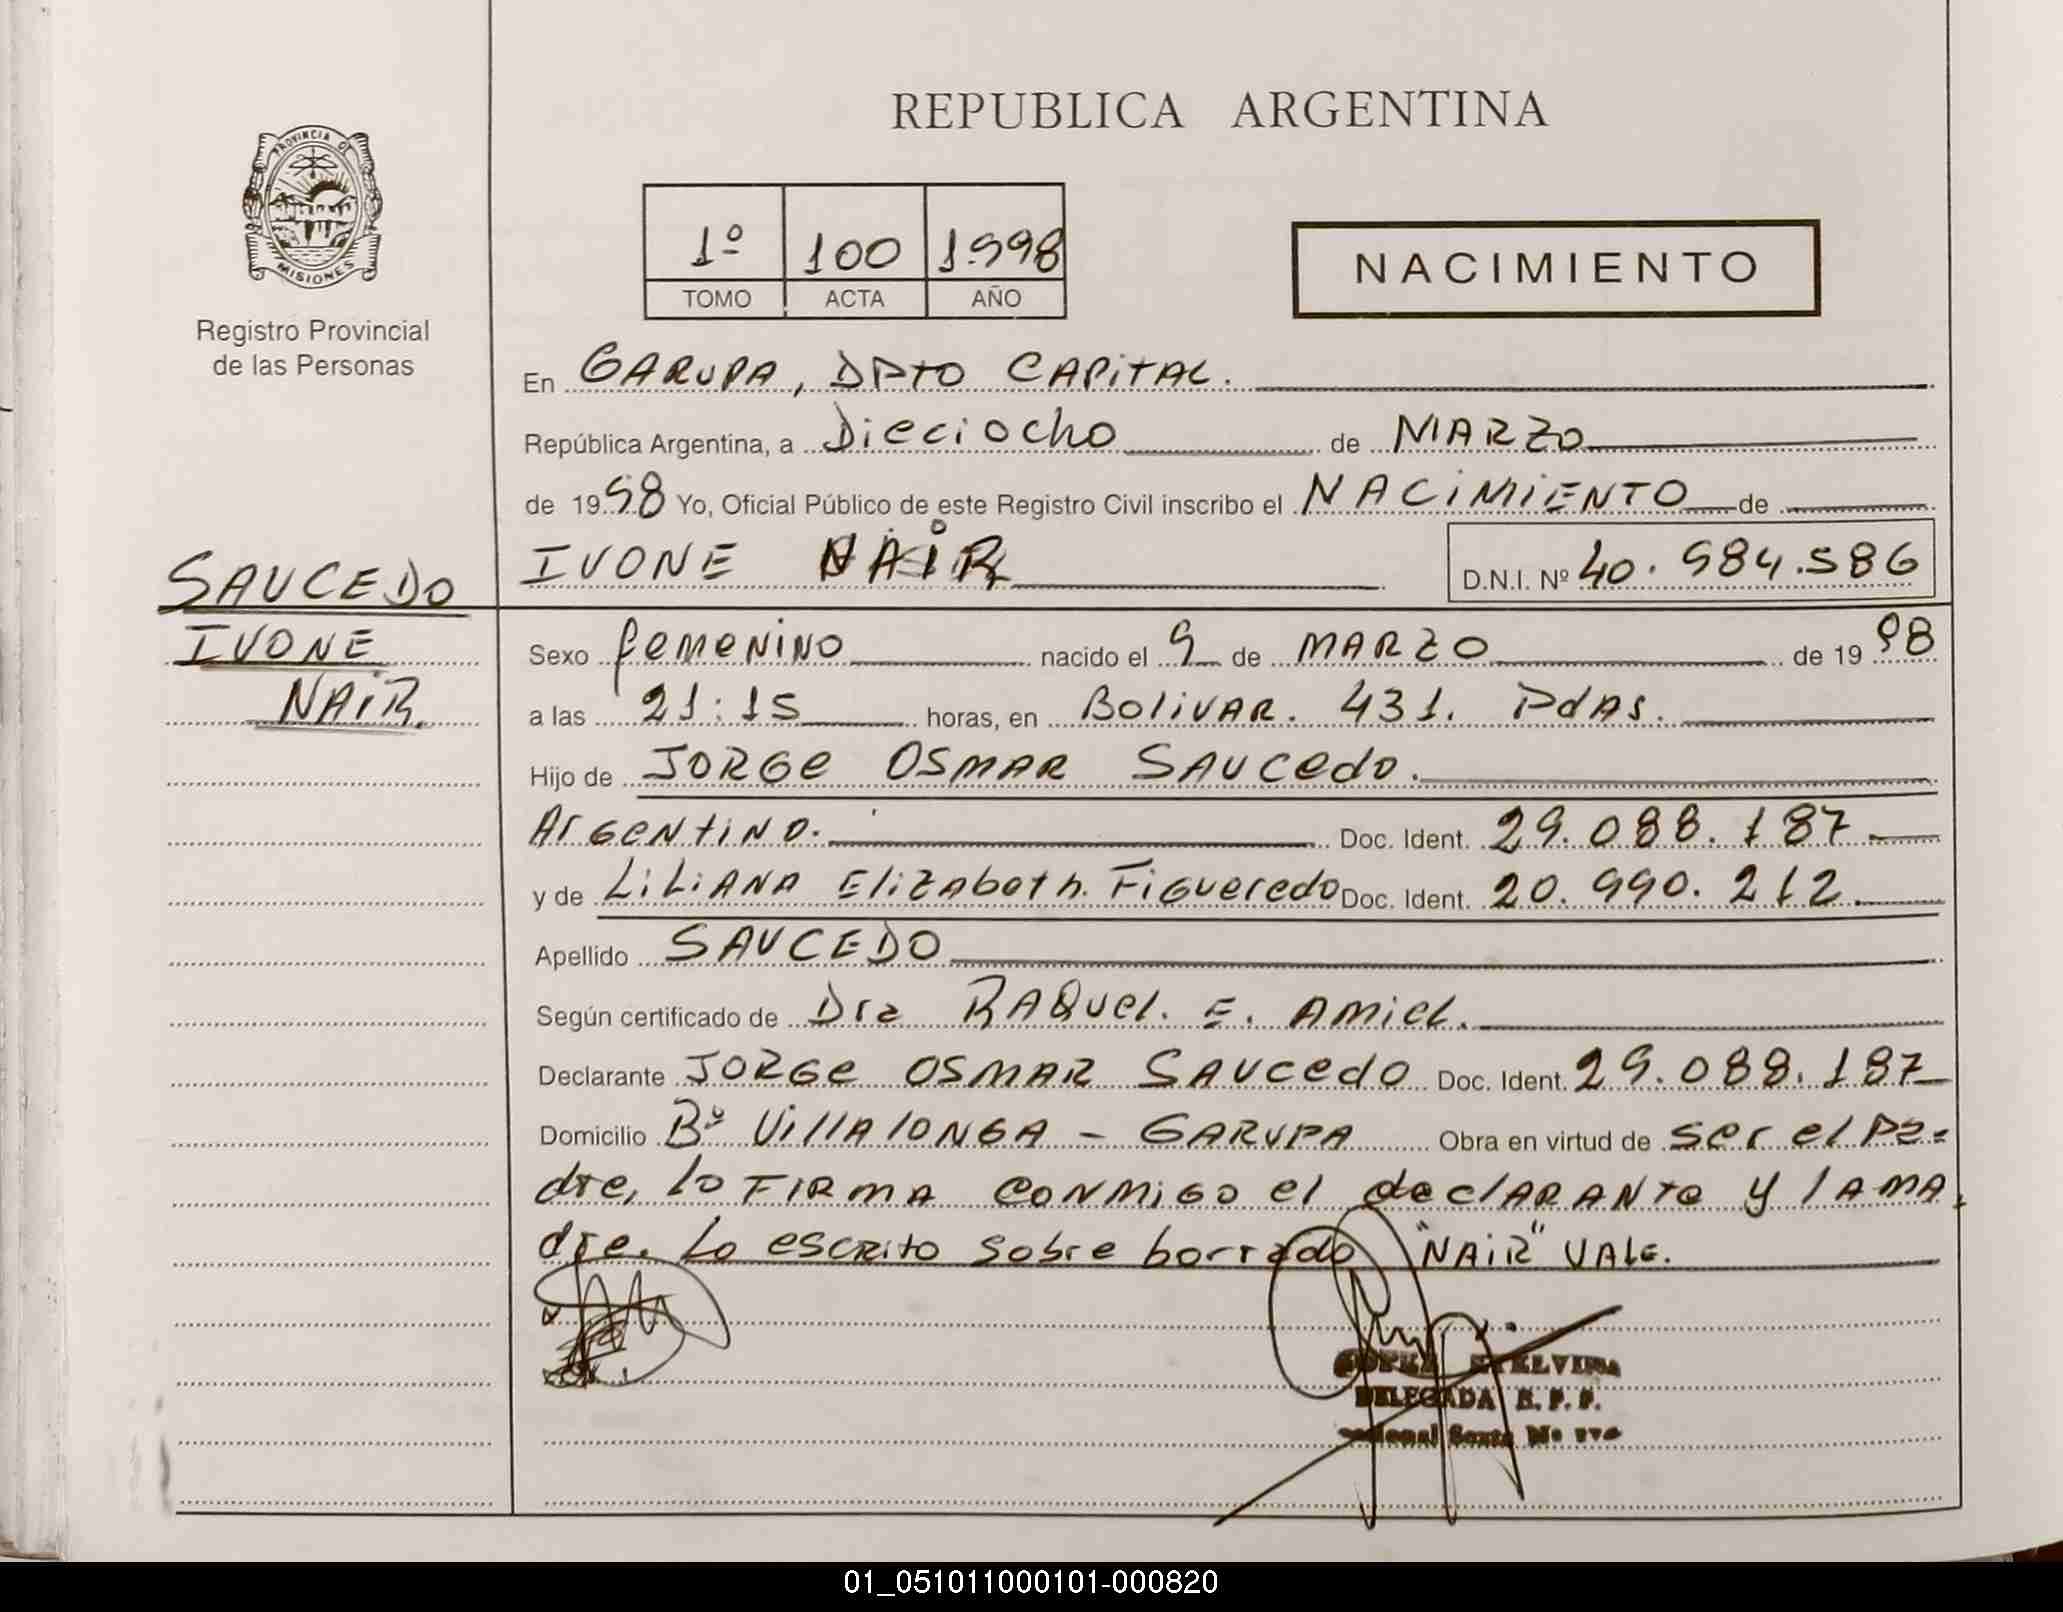 REPUBLICA ARGENTINA
PROVINCIA DE
MISIONES
Registro Provincial
de las Personas
1º 100 1.998
TOMO ACTA AÑO
NACIMIENTO
En GARUPA, DPTO CAPITAL.
República Argentina, a Dieciocho de MARZO
de 1998 Yo, Oficial Público de este Registro Civil inscribo el NACIMIENTO de
IVONE NAIR D.N.I. Nº 40.984.586
SAUCEDO
IVONE
NAIR.
Sexo femenino nacido el 9 de MARZO de 1998
a las 21:15 horas, en Bolivar. 431. Pdas.
Hijo de JORGe OSMAR SAUCedo.
Argentino. Doc. Ident. 29.088.187
y de LiLiANA Elizabeth. Figueredo Doc. Ident. 20.990.212
Apellido SAUCEDO
Según certificado de Dra RAQuel. E. Amiel.
Declarante JORGe OSMAR SAUCedO Doc. Ident. 29.088.187
Domicilio Bº VillAlONGA - GARUPA Obra en virtud de ser el pa-
dre, lo FIRMA CONMIGO el declARANTe y lA MA
dre. Lo escrito sobre borrado "NAIR" VALE.
STELVINA
DELEGADA
01_051011000101-000820